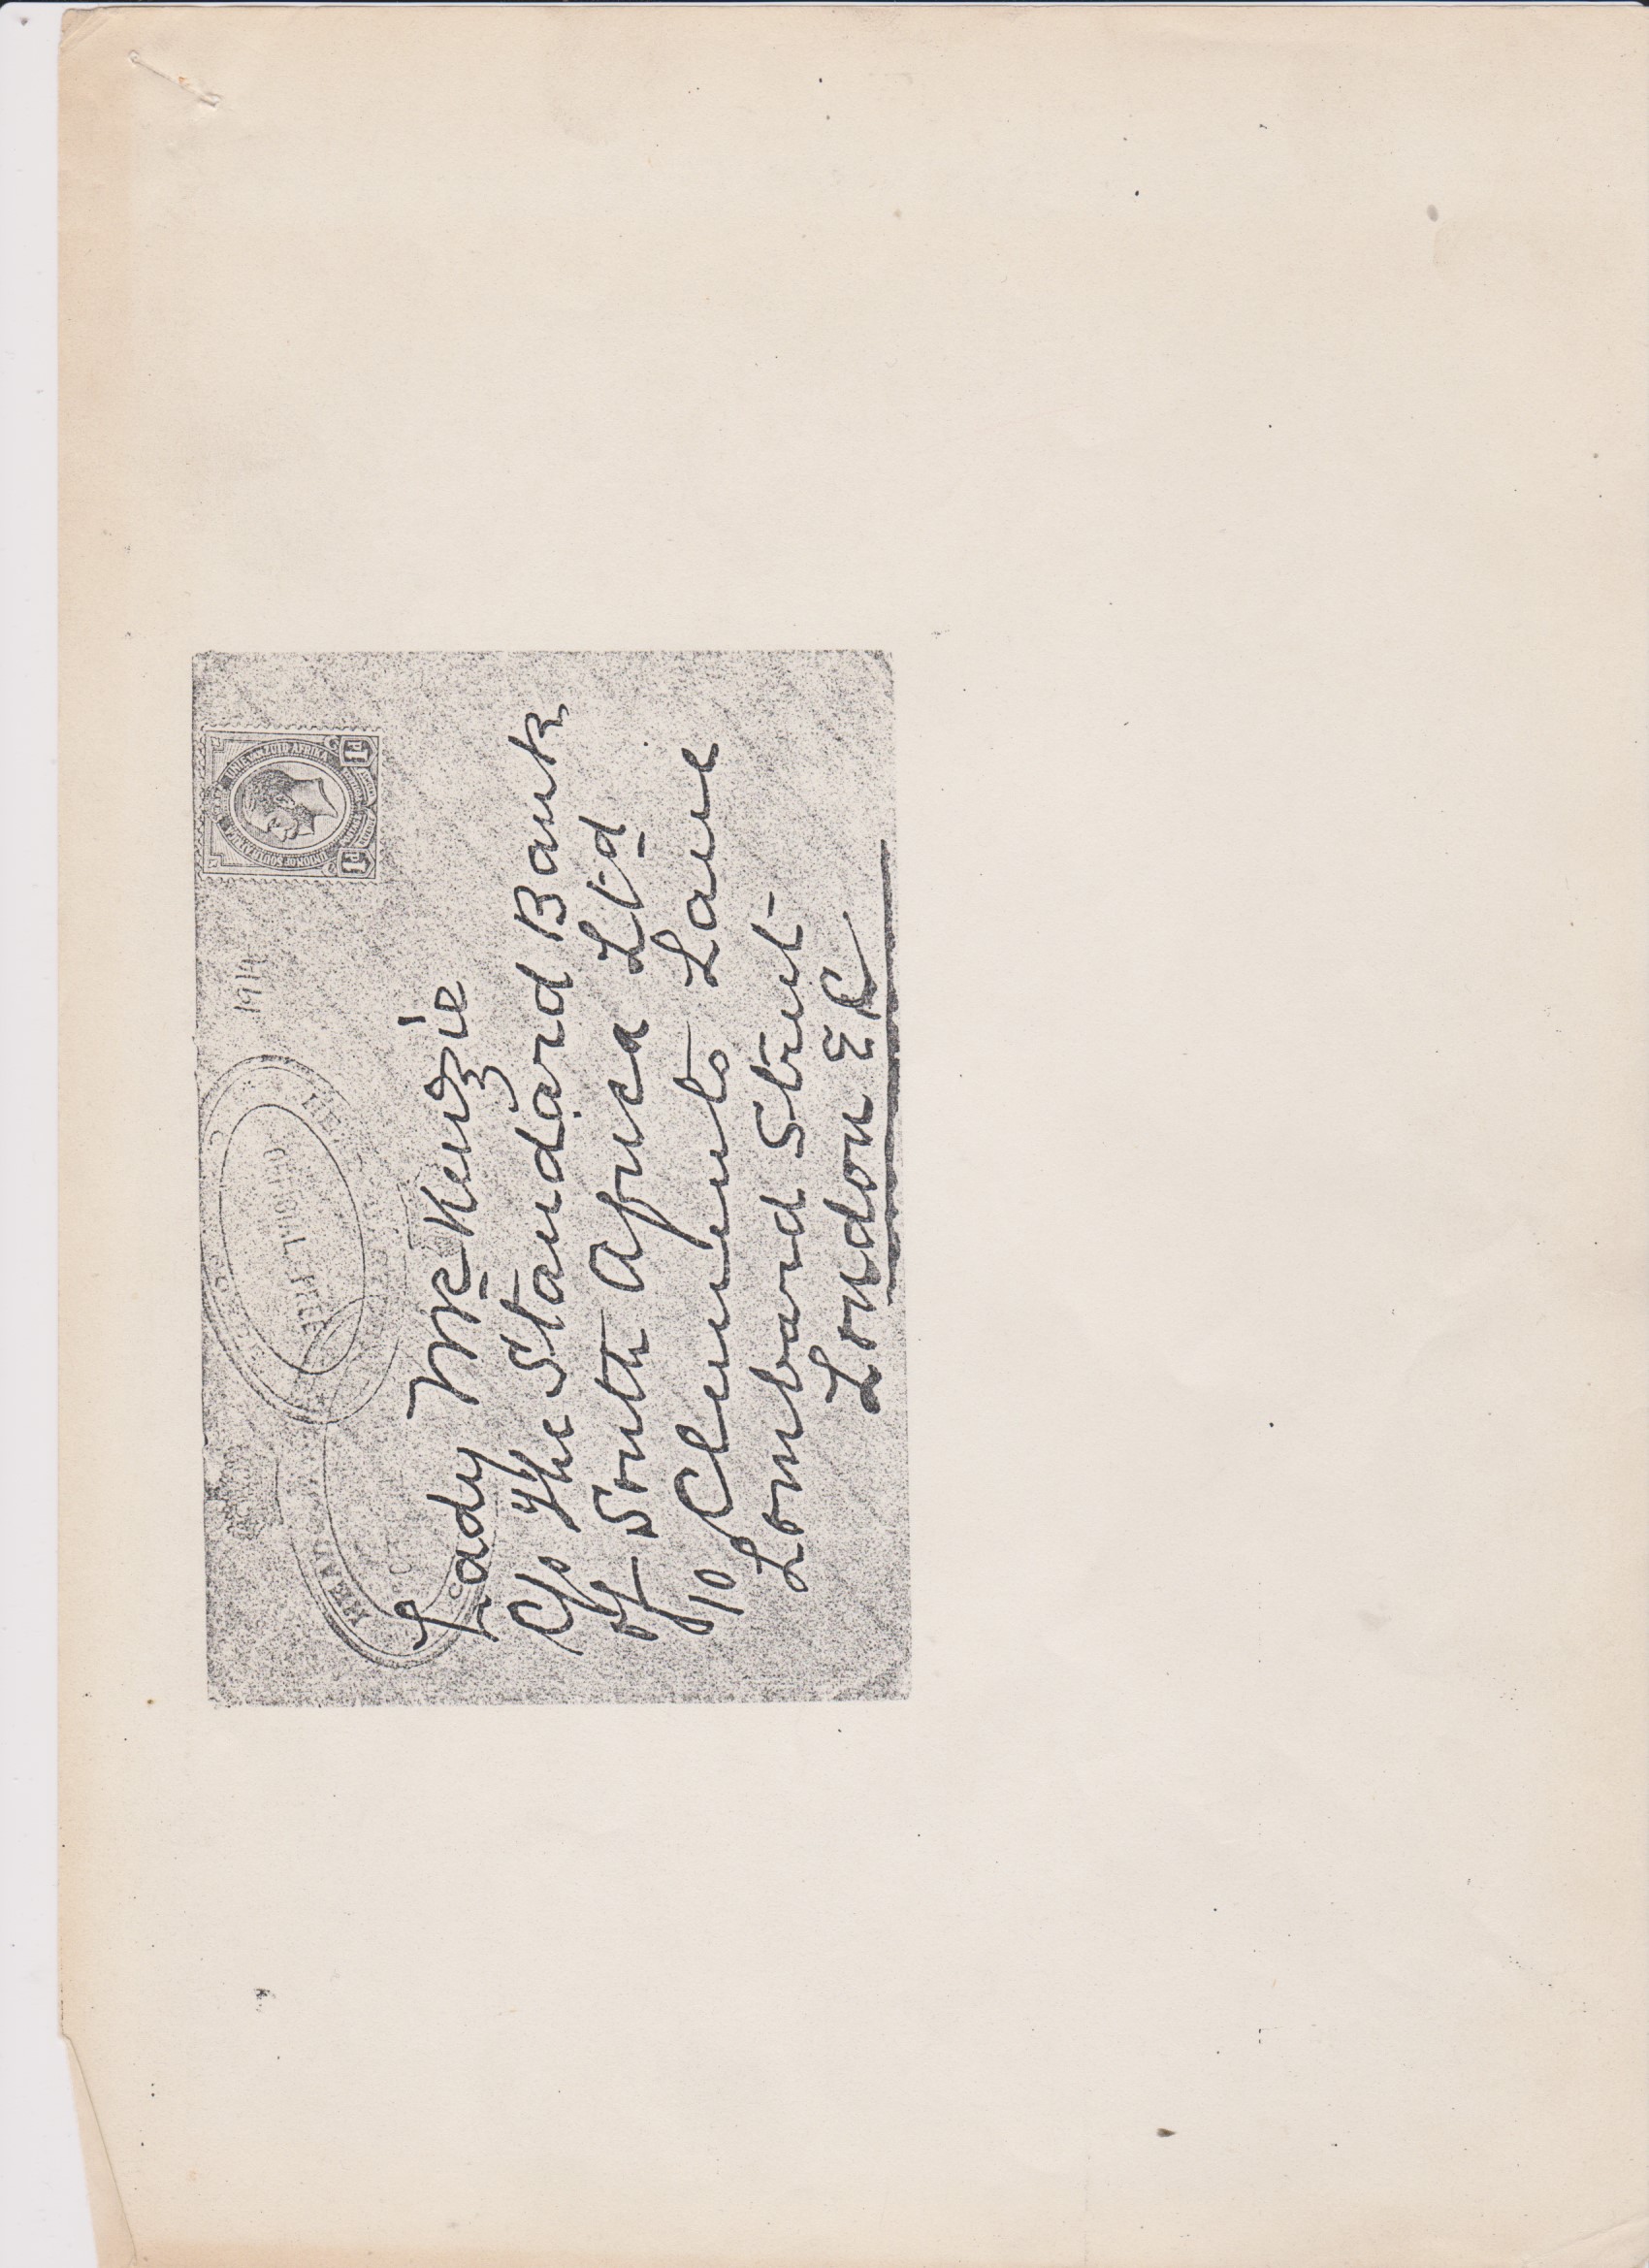 1914
UNION OF SOUTH AFRICA
UNIE VAN ZUID AFRIKA
OFFICIAL FREE
Lady McKenzie
C/o The Standard Bank
of South Africa Ltd
10 Clements Lane
Lombard Street
London EC